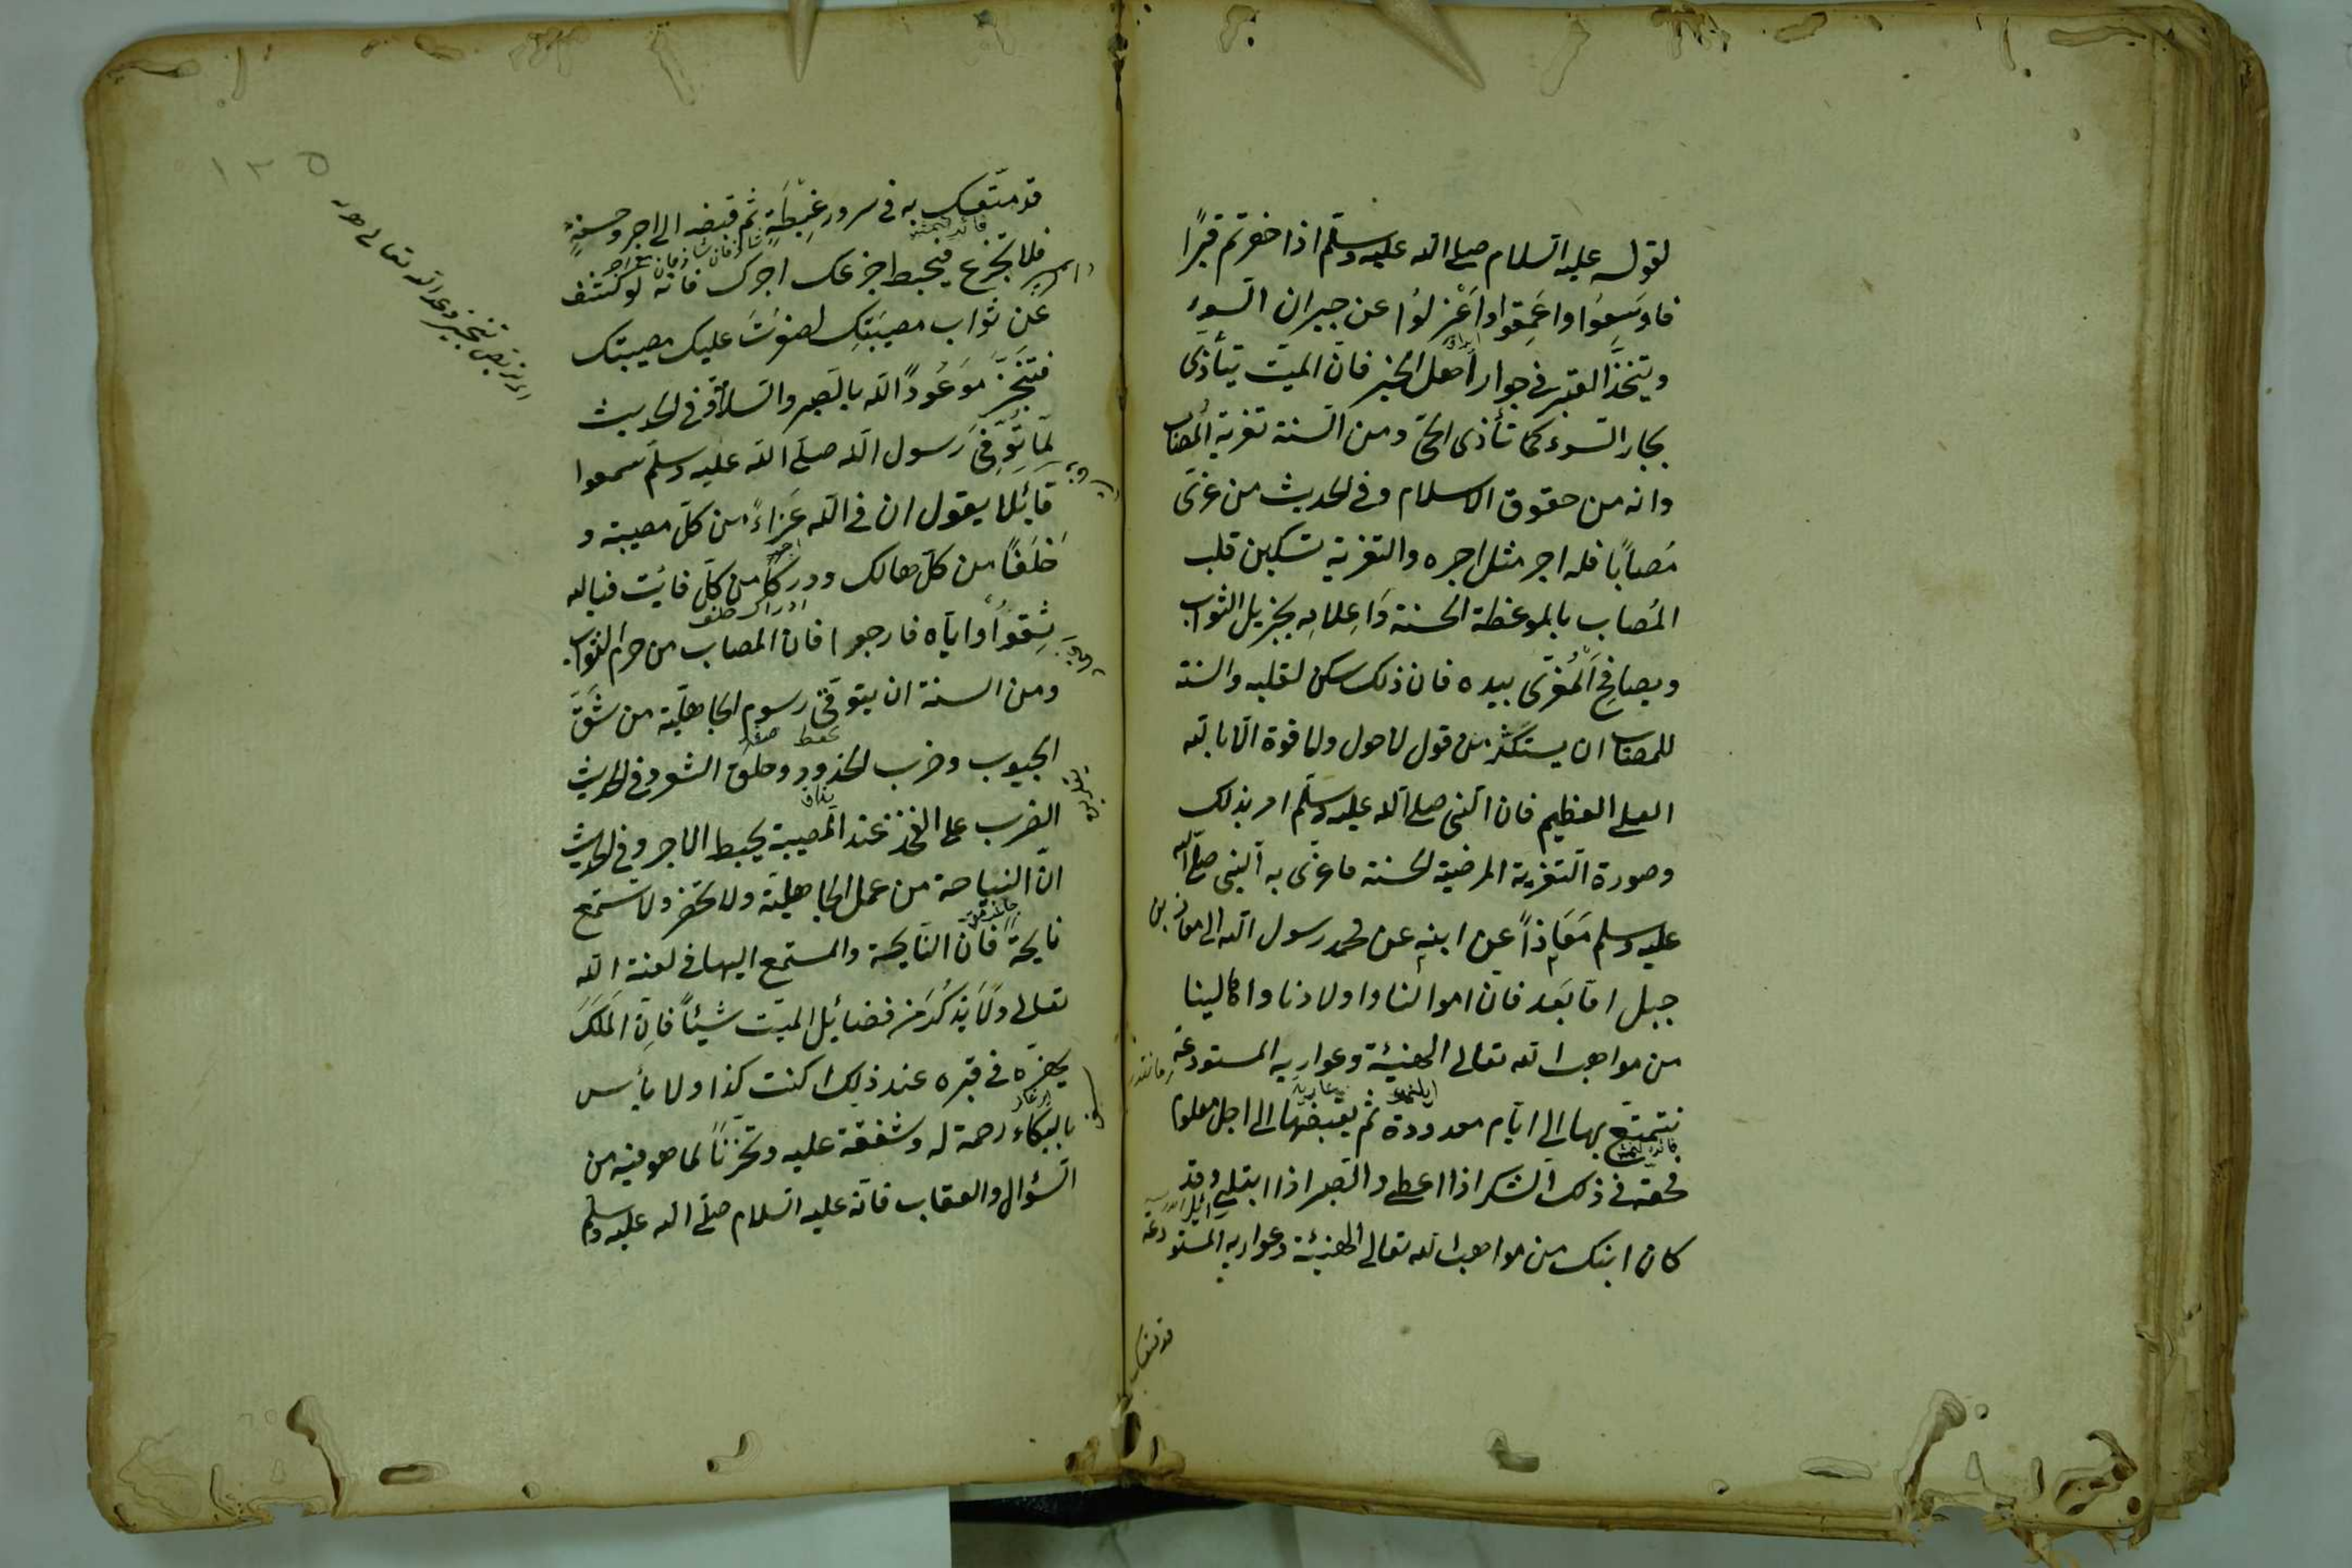 لقوله عليه السلام صلى الله عليه وسلم اذا حفرتم قبرًا
فاوسِعُوا واعمِقوا واعْزلوُا عن جيران السوء
ويتخذ القبر في جوار اهل الخير فان الميت يتأذى
بجار السوء كما تأذى الحى ومن السنة تعزية المُصاب
وانه من حقوق الاسلام وفى الحديث من عزى
مُصابًا فله اجر مثل اجره والتعزية تسكين قلب
المُصاب بالموعظة الحسنة وَاِعلامِه بجزيل الثواب
ويصافح المُعزّى بيده فان ذلك سكن لقلبه والسنة
للمصاب ان يستكثر من قول لا حول ولا قوة الا بالله
العلى العظيم فان النبى صلى الله عليه وسلم امر بذلك
وصورة التعزية المرضية الحسنة ما عزى به النبى صلى الله
عليه وسلم مَعَاذاً عن ابنه عن محمد رسول الله الى معاذ بن
جبل اما بَعد فان اموالنا واولادنا واهالينا
من مواهب الله تعالى الهنيئة وعواريه المستودعة
نتمتع بها الى ايام معدودة ثم يقبضها الى اجل معلوم
فحقه فى ذلك الشكر اذا اعطى والصبر اذا ابتلى وقد
كان ابنك من مواهب الله تعالى الهنيئة وعواريه المستودعة
١٢٥
قد متعك به فى سرور غِبطَةٍ ثم قبضه الى اجر وحسنةٍ
فلا تجزع فيحبط اجزعك اجرك فانه لو كشف
عَن ثواب مصيبَتِك لصغرَت عليك مصيبتك
فتنَجَّز مَوعُودَ الله بالصبر والسلام وفى الحديث
لمّا تُوِفّىَ رسول الله صلى الله عليه وسلم سمعوا
قائلا يقول ان فى الله عَزاءً من كل مصيبة و
خَلَفًا من كل هالك ودركًا من كل فائت فبالله
ثِقوُا واياه فارجوا فان المصاب من حرم الثواب
ومن السنة ان يتوقى رسوم الجاهلية من شَقّ
الجيوب وضرب الخدود وحلق الشعر وفى الحديث
الضرب على الفخذ عند المصيبة يحبط الاجر وفى الحديث
ان النياحة من عمل الجاهلية ولا تحضر ولا تستمع
نايحةً فان النايحة والمستمع اليها فى لعنة الله
تعالى ولا يَذكُر من فضائل الميت شيئاً فان المَلَكَ
يحضره فى قبره عند ذلك اكنت كذا ولا بأس
بالبكاء رحمة له وشفقة عليه وتحزنًا لما هو فيه من
السؤال والعقاب فانه عليه السلام صلى الله عليه وسلم